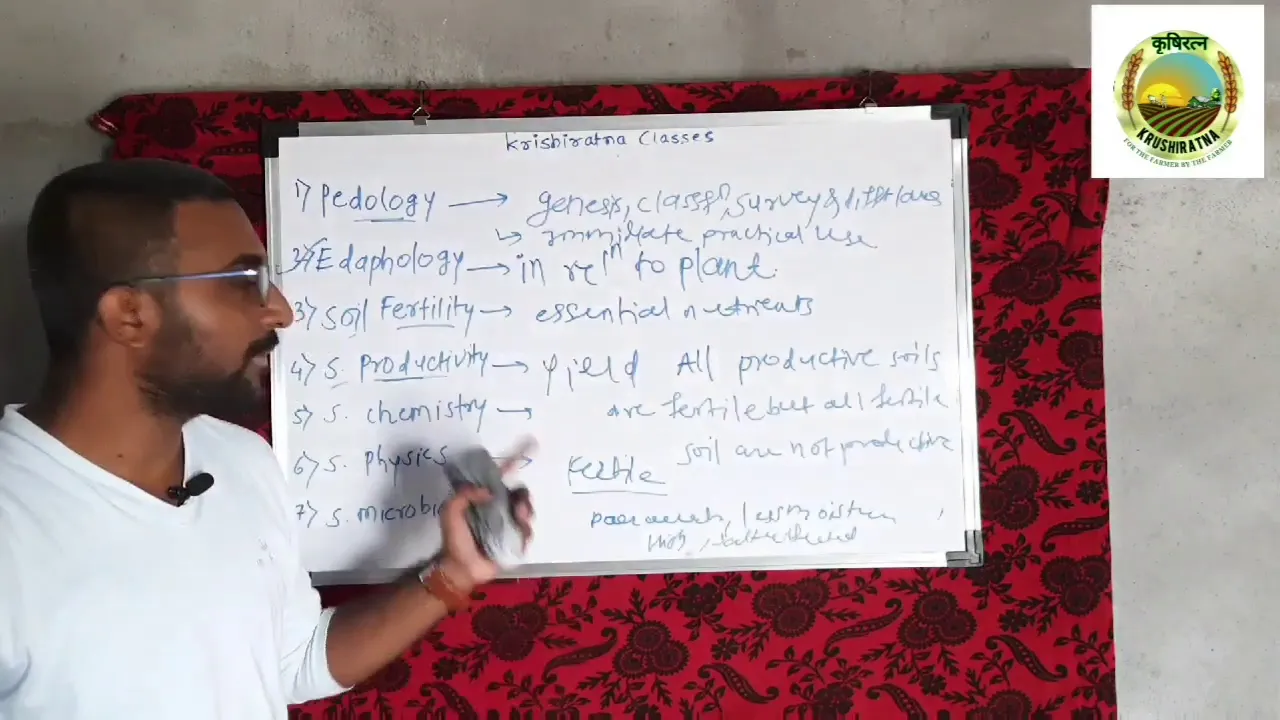 कृषिरत्न
KRUSHIRATNA
FOR THE FARMER BY THE FARMER
Krishiratna Classes
1) Pedology → genesis, classfⁿ, survey &
↳ immidiate practical use
Edaphology → in relⁿ to plant.
3) Soil Fertility → essential nutrients
4) S. Productivity → yield All productive soils
5) S. chemistry → are fertile but all fertile
6) S. Physics → Fertile soil are not productive
7) S. microbi